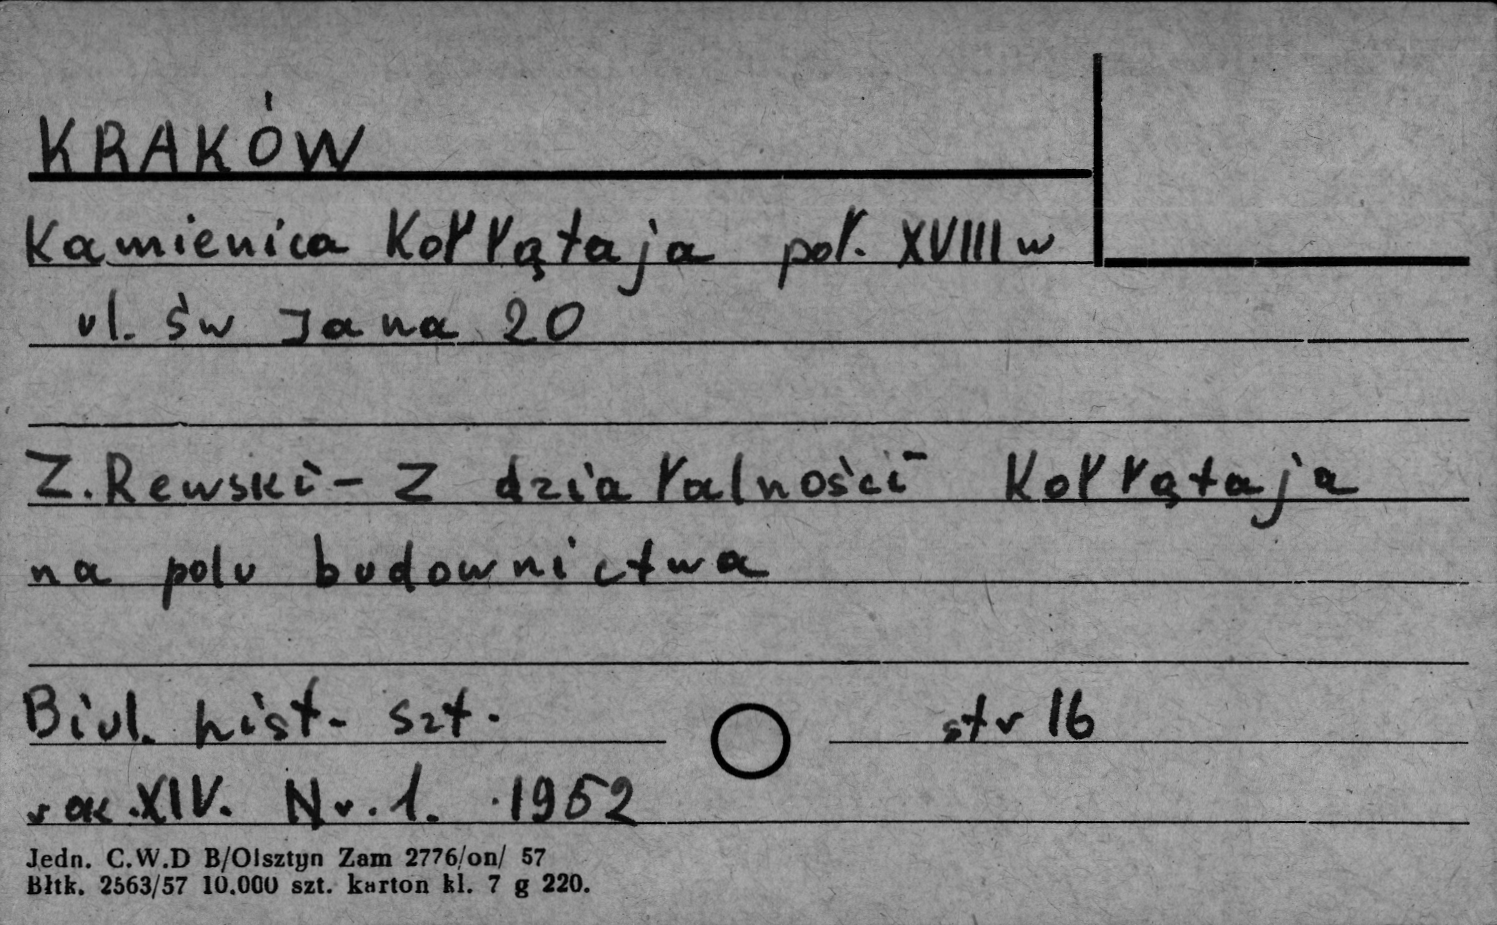 KRAKÓW
Kamienica Kołłątaja poł. XVIII w
ul. św Jana 20
Z. Rewski - Z działalności Kołłątaja
na polu budownictwa
Biul. hist. szt. str 16
rok XIV. Nr. 1. 1952
Jedn. C.W.D B/Olsztyn Zam 2776/on/ 57
Błtk. 2563/57 10.000 szt. karton kl. 7 g 220.